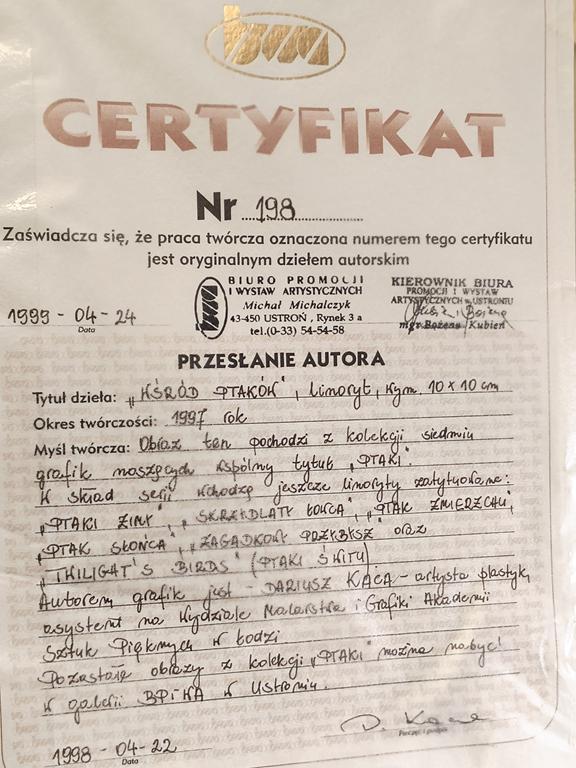 bwa
CERTYFIKAT
Nr 198
Zaświadcza się, że praca twórcza oznaczona numerem tego certyfikatu
jest oryginalnym dziełem autorskim
1999-04-24
Data
bwa
BIURO PROMOCJI
I WYSTAW ARTYSTYCZNYCH
Michał Michalczyk
43-450 USTROŃ, Rynek 3 a
tel.(0-33) 54-54-58
KIEROWNIK BIURA
PROMOCJI I WYSTAW
ARTYSTYCZNYCH w USTRONIU
mgr Bożena Kubień
PRZESŁANIE AUTORA
Tytuł dzieła: „WŚRÓD PTAKÓW", linoryt, wym. 10 x 10 cm
Okres twórczości: 1997 rok
Myśl twórcza: Obraz ten pochodzi z kolekcji siedmiu
grafik noszących wspólny tytuł „PTAKI".
W skład serii wchodzą jeszcze linoryty zatytułowane:
„PTAKI ZIMY", „SKRZYDLATY ŁOWCA", „PTAK ZMIERZCHU",
„PTAK SŁOŃCA", „ZAGADKOWY PRZYBYSZ" oraz
„TWILIGAT'S BIRDS" (PTAKI ŚWITU)
Autorem grafik jest - DARIUSZ KACA - artysta plastyk,
asystent na Wydziale Malarstwa i Grafiki Akademii
Sztuk Pięknych w Łodzi
Pozostałe obrazy z kolekcji „PTAKI" można nabyć!
w galerii BPiWA w Ustroniu.
1998-04-22
Data
D. Kaca
Pieczęć i podpis